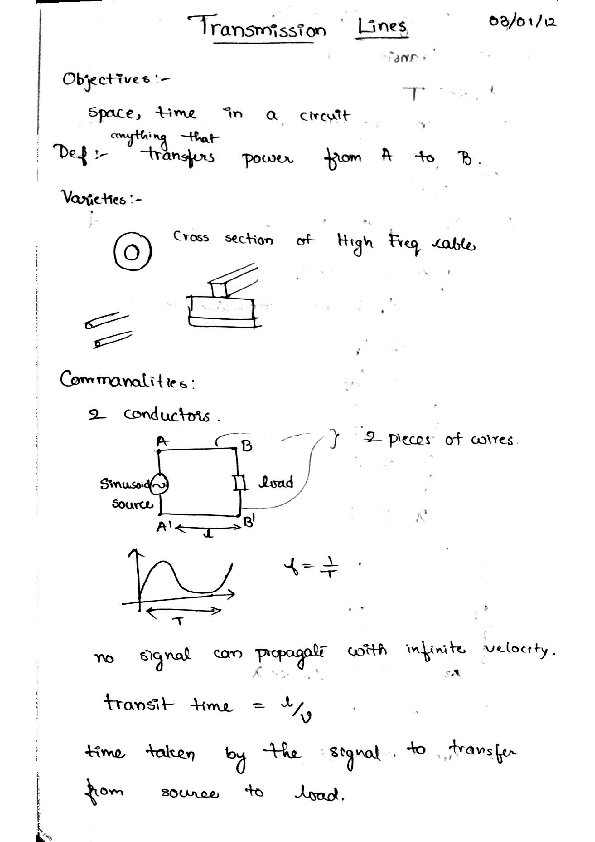 Transmission Lines 03/01/12
Objectives :-
Space, time in a circuit
anything that
Def :- transfers power from A to B.
Varieties :-
Cross section of High Freq cable
Commanalities :
2 conductors.
A B } 2 pieces of wires
Sinusoid load
source
A' l B'
T f = 1/T
no signal can propagate with infinite velocity.
transit time = l/v
time taken by the signal to transfer
from source to load.